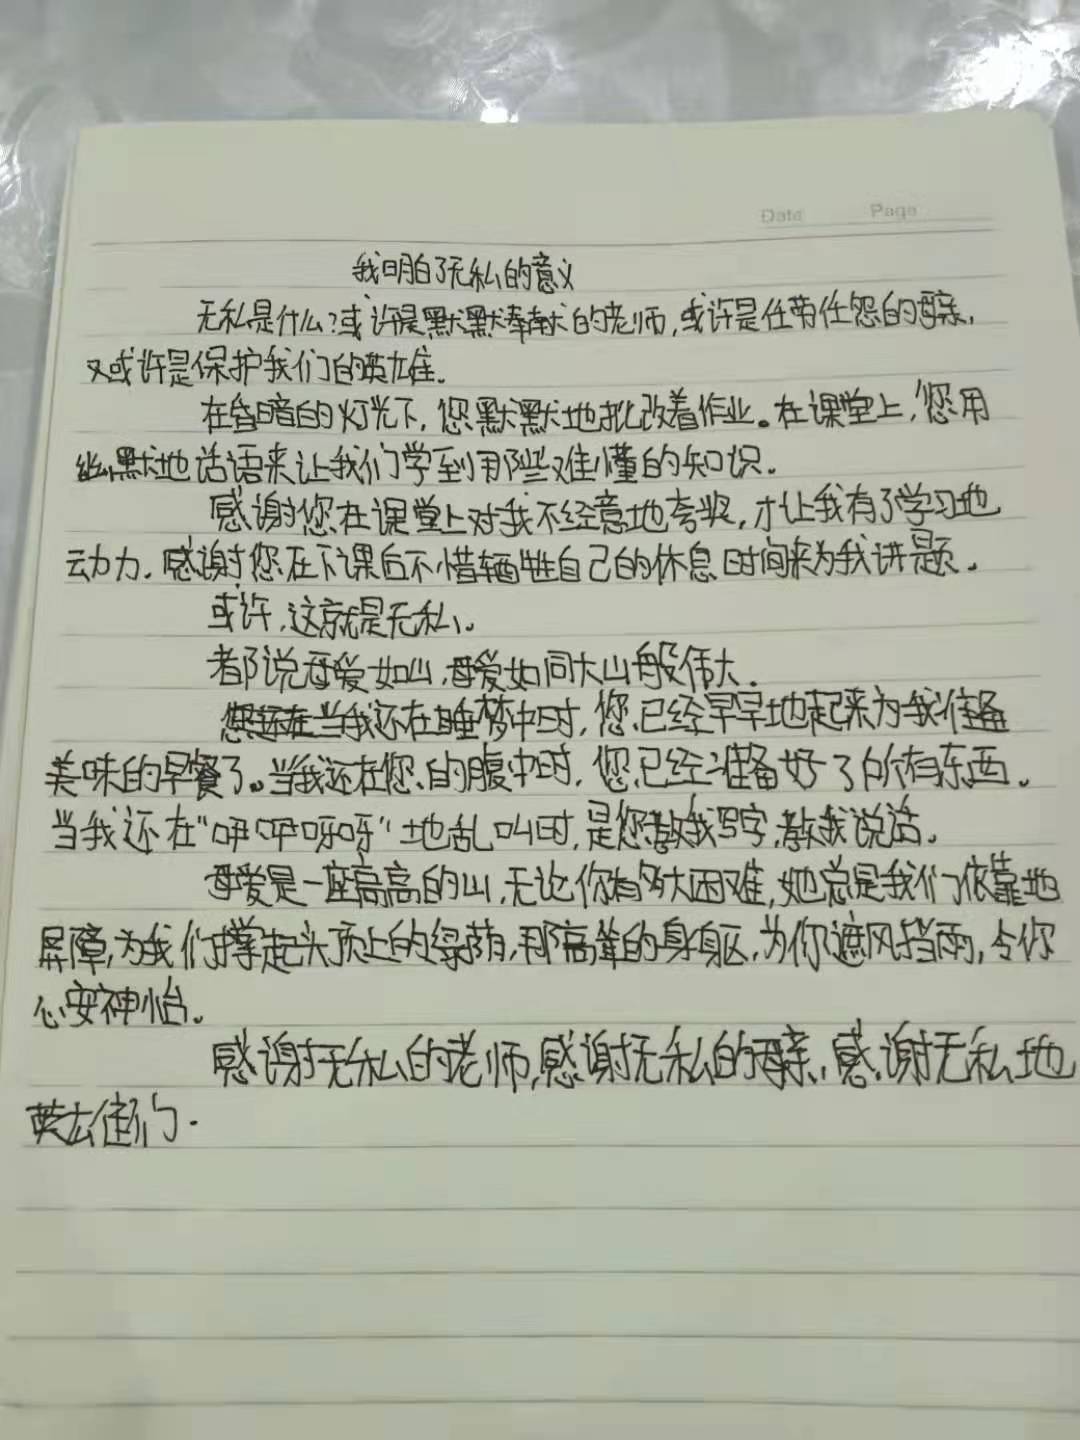 Date Page
我明白了无私的意义
无私是什么?或许是默默奉献的老师,或许是任劳任怨的母亲,
又或许是保护我们的英雄.
在昏暗的灯光下,您默默地批改着作业。在课堂上,您用
幽默地话语来让我们学到那些难懂的知识.
感谢您在课堂上对我不经意地夸奖,才让我有了学习地
动力.感谢您在下课后不惜牺牲自己的休息时间来为我讲题.
或许,这就是无私.
都说母爱如山,母爱如同大山般伟大.
当我还在睡梦中时,您已经早早地起来为我准备
美味的早餐了。当我还在您的腹中时,您已经准备好了所有东西.
当我还在“咿咿呀呀”地乱叫时,是您教我写字,教我说话.
母爱是一座高高的山,无论你有多大困难,她总是我们依靠地
屏障,为我们撑起头顶上的绿荫,那高耸的身躯,为你遮风挡雨,令你
心安神怡.
感谢无私的老师,感谢无私的母亲,感谢无私地
英雄们.